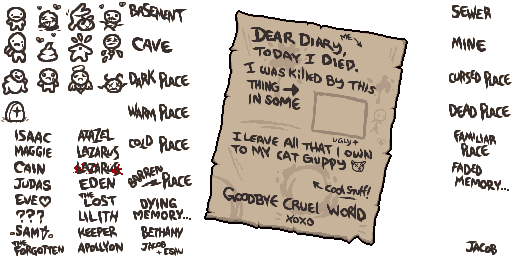 BASEMENT
CAVE
DARK PLACE
WARM PLACE
COLD PLACE
BARREN PLACE
DYING
MEMORY...
BETHANY
JACOB
+ ESAU
ISAAC
MAGGIE
CAIN
JUDAS
EVE
???
SAMSON
THE
FORGOTTEN
AZAZEL
LAZARUS
LAZARUS
EDEN
THE
LOST
LILITH
KEEPER
APOLLYON
DEAR DIARY,
ME
TODAY I DIED.
I WAS KILLED BY THIS
THING
IN SOME
UGLY
I LEAVE ALL THAT I OWN
TO MY CAT GUPPY
COOL STUFF!
GOODBYE CRUEL WORLD
XOXO
SEWER
MINE
CURSED PLACE
DEAD PLACE
FAMILIAR
PLACE
FADED
MEMORY...
JACOB